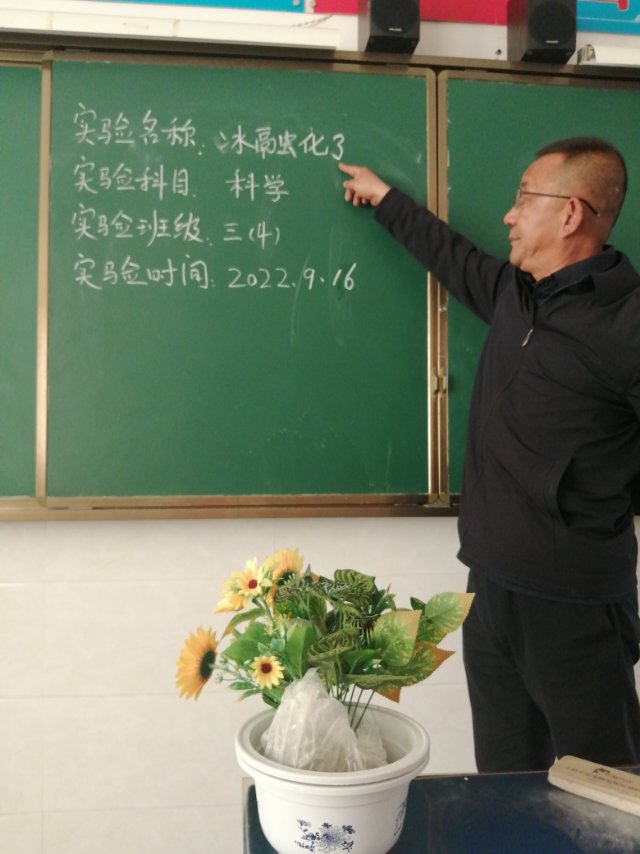 实验名称:冰融化了
实验科目:科学
实验班级:三(4)
实验时间:2022.9.16